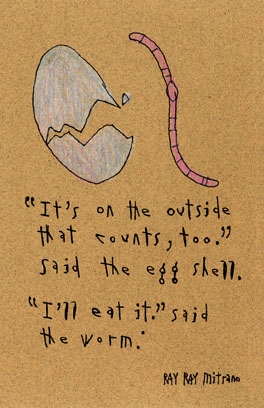 "It's on the outside
that counts, too."
said the egg shell.
"I'll eat it." said
the worm.
RAY RAY mitrano